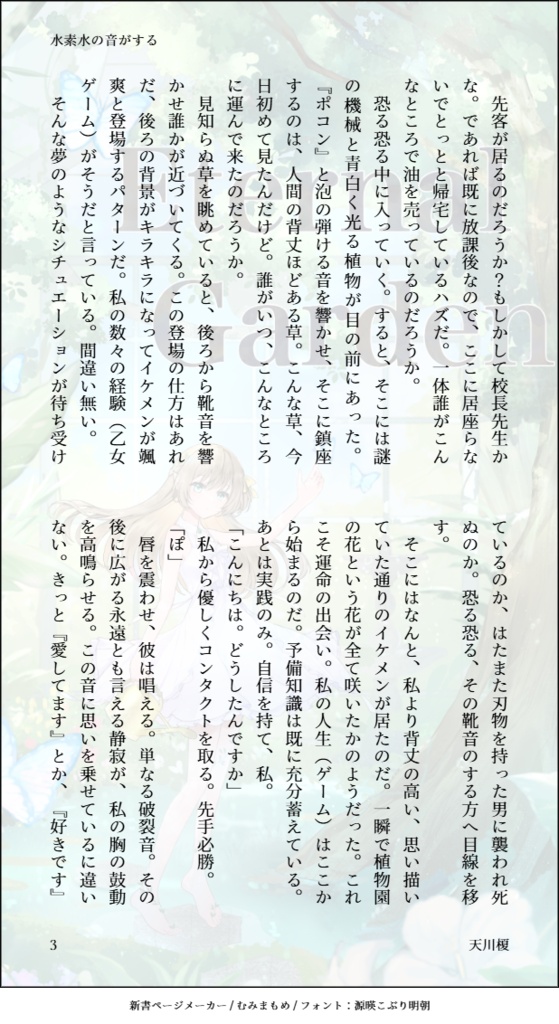 水素水の音がする
Eternal
Garden
　先客が居るのだろうか？もしかして校長先生か
な。であれば既に放課後なので、ここに居座らな
いでとっとと帰宅しているハズだ。一体誰がこん
なところで油を売っているのだろうか。
　恐る恐る中に入っていく。すると、そこには謎
の機械と青白く光る植物が目の前にあった。
『ポコン』と泡の弾ける音を響かせ、そこに鎮座
するのは、人間の背丈ほどある草。こんな草、今
日初めて見たんだけど。誰がいつ、こんなところ
に運んで来たのだろうか。
　見知らぬ草を眺めていると、後ろから靴音を響
かせ誰かが近づいてくる。この登場の仕方はあれ
だ、後ろの背景がキラキラになってイケメンが颯
爽と登場するパターンだ。私の数々の経験（乙女
ゲーム）がそうだと言っている。間違い無い。
　そんな夢のようなシチュエーションが待ち受け
ているのか、はたまた刃物を持った男に襲われ死
ぬのか。恐る恐る、その靴音のする方へ目線を移
す。
　そこにはなんと、私より背丈の高い、思い描い
ていた通りのイケメンが居たのだ。一瞬で植物園
の花という花が全て咲いたかのようだった。これ
こそ運命の出会い。私の人生（ゲーム）はここか
ら始まるのだ。予備知識は既に充分蓄えている。
あとは実践のみ。自信を持て、私。
「こんにちは。どうしたんですか」
　私から優しくコンタクトを取る。先手必勝。
「ぽ」
　唇を震わせ、彼は唱える。単なる破裂音。その
後に広がる永遠とも言える静寂が、私の胸の鼓動
を高鳴らせる。この音に思いを乗せているに違い
ない。きっと『愛してます』とか、『好きです』
3
天川榎
新書ページメーカー / むみまもめ / フォント：源暎こぶり明朝